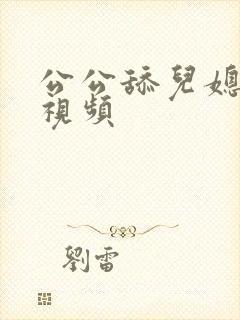 公公舔兒媳
視頻
劉雷